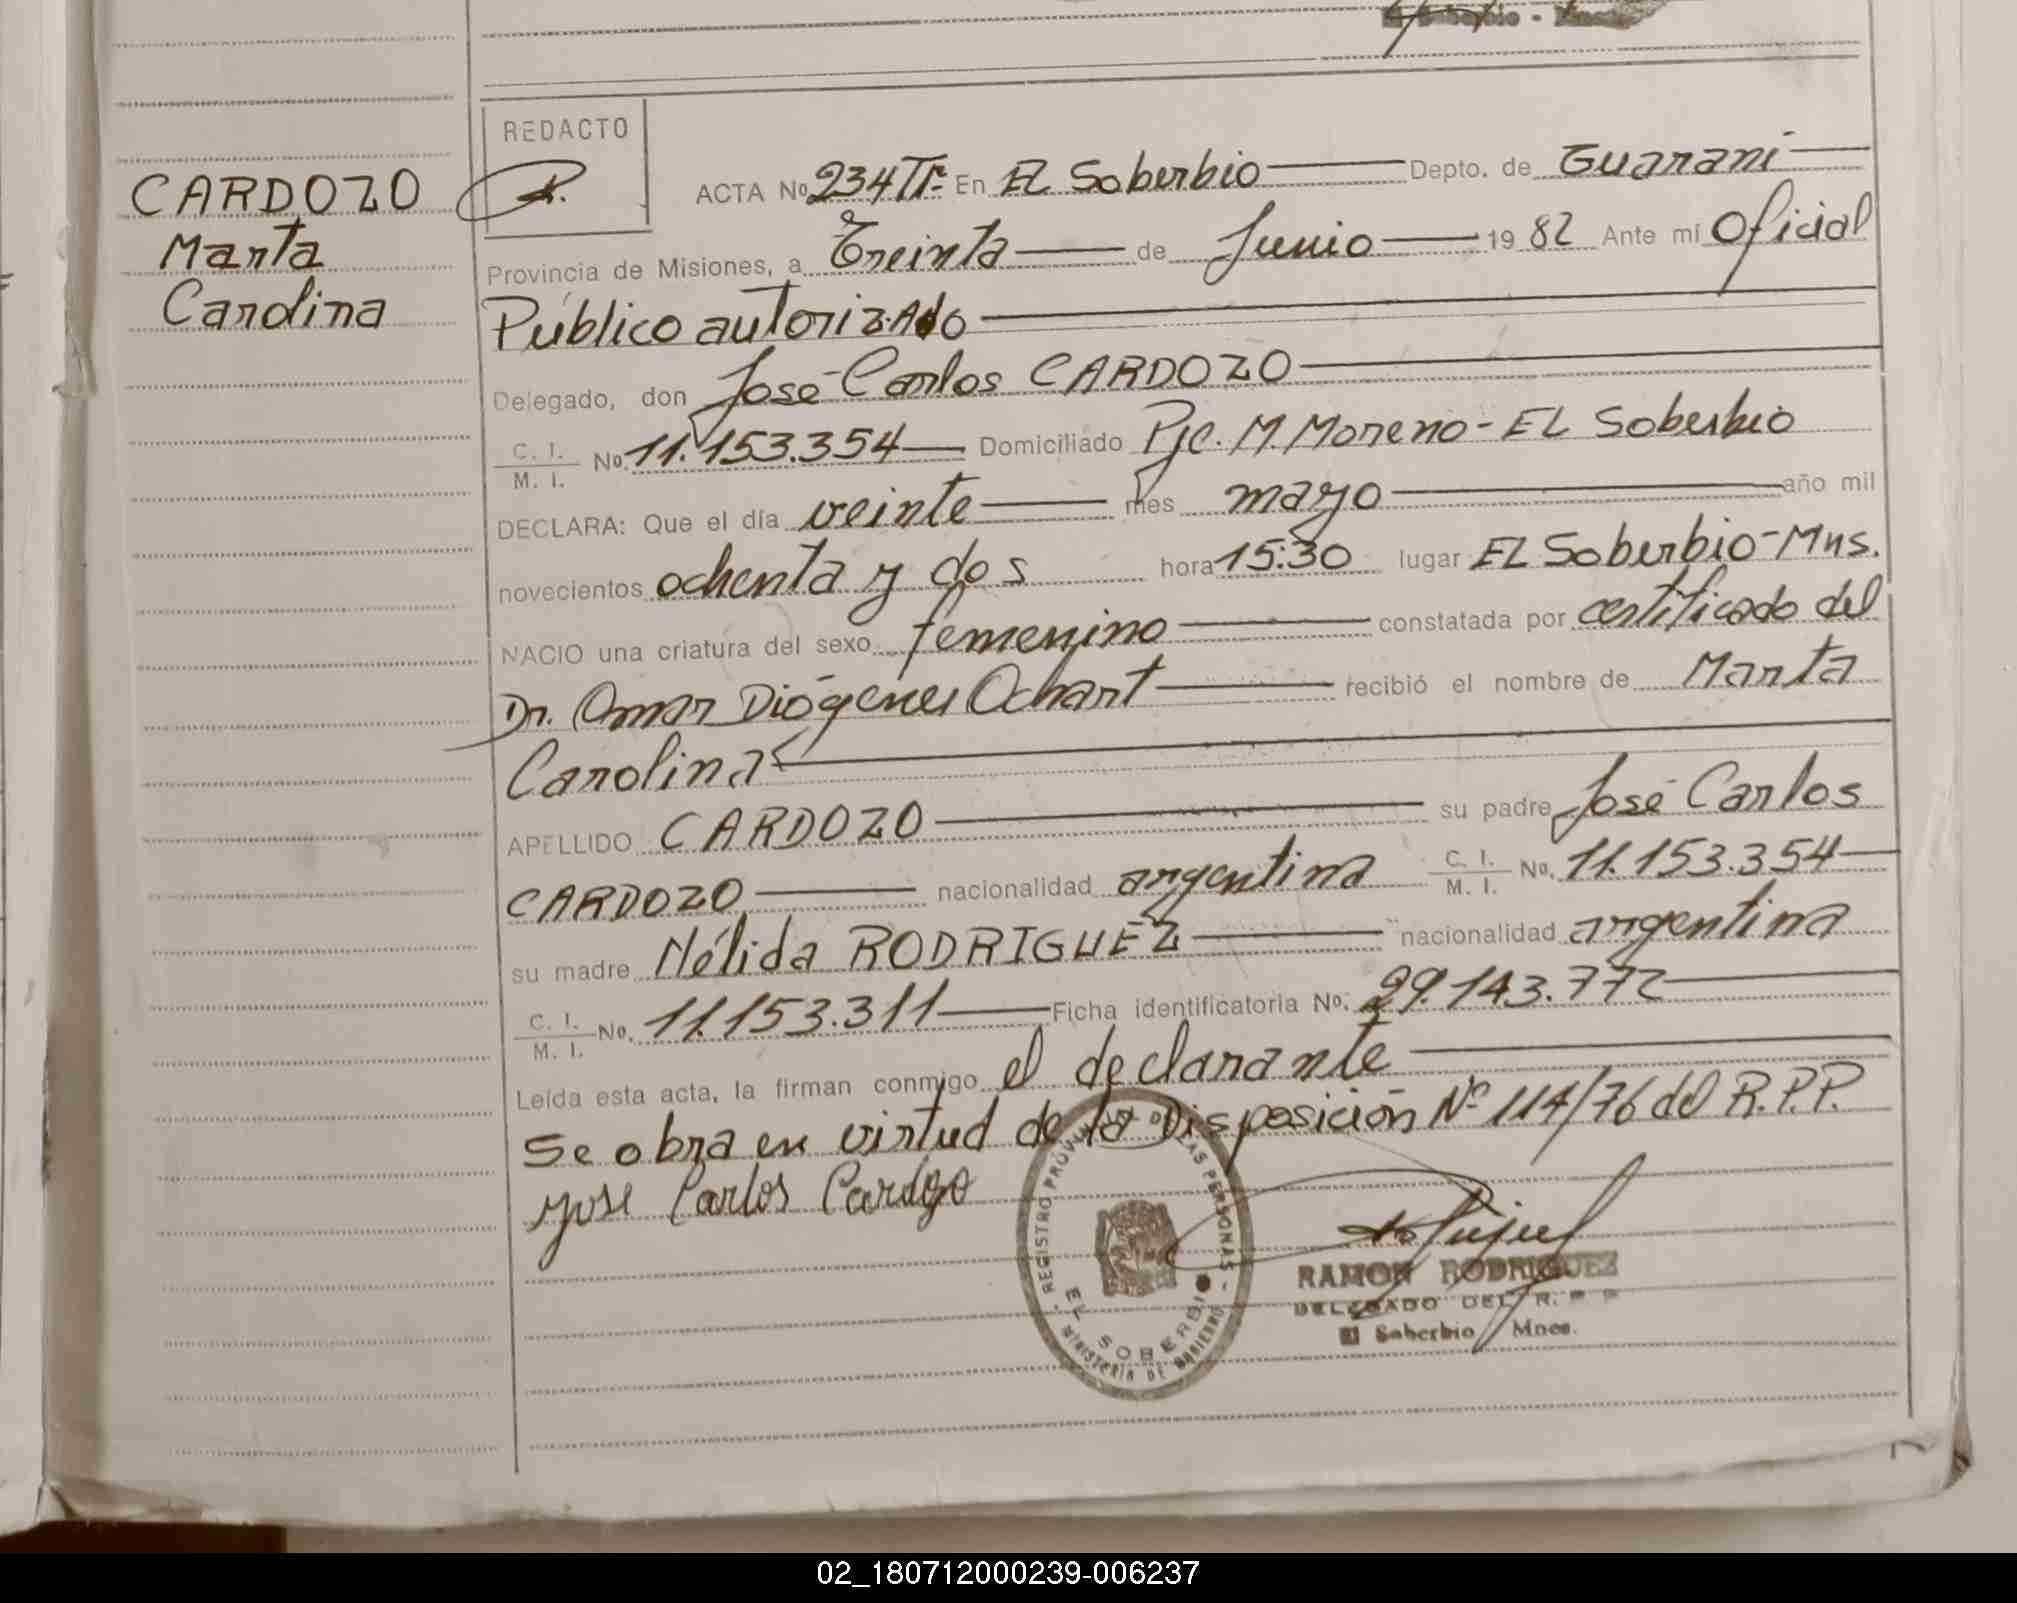 El Soberbio - Mnes.
CARDOZO
Marta
Carolina
REDACTO
ACTA No. 234 Tº. En EL Soberbio Depto. de Guaraní
Provincia de Misiones, a Treinta de Junio 1982 Ante mí Oficial
Público autorizAdo
Delegado, don José Carlos CARDOZO
C. I. / M. I. No. 11.153.354 Domiciliado Pje. M. Moreno - EL Soberbio
DECLARA: Que el día veinte mes mayo año mil
novecientos ochenta y dos hora 15:30 lugar EL Soberbio - Mns.
NACIO una criatura del sexo femenino constatada por certificado del
Dr. Omar Diógenes Ochart recibió el nombre de Marta
Carolina
APELLIDO CARDOZO su padre José Carlos
CARDOZO nacionalidad argentina C. I. / M. I. No. 11.153.354
su madre Nélida RODRIGUEZ nacionalidad argentina
C. I. / M. I. No. 11.153.311 Ficha identificatoria No. 29.143.772
Leída esta acta, la firman conmigo el declarante
Se obra en virtud de la Disposición Nº 114/76 del R.P.P.
Jose Carlos Cardozo
REGISTRO PROVINCIAL DE LAS PERSONAS
EL SOBERBIO
MINISTERIO DE GOBIERNO
RAMON RODRIGUEZ
DELEGADO DEL R. P. P.
El Soberbio Mnes.
02_180712000239-006237